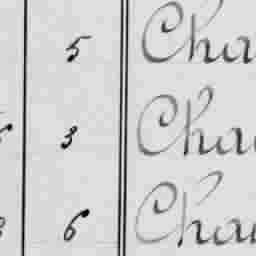 5 Cha
3 Cha
6 Cha